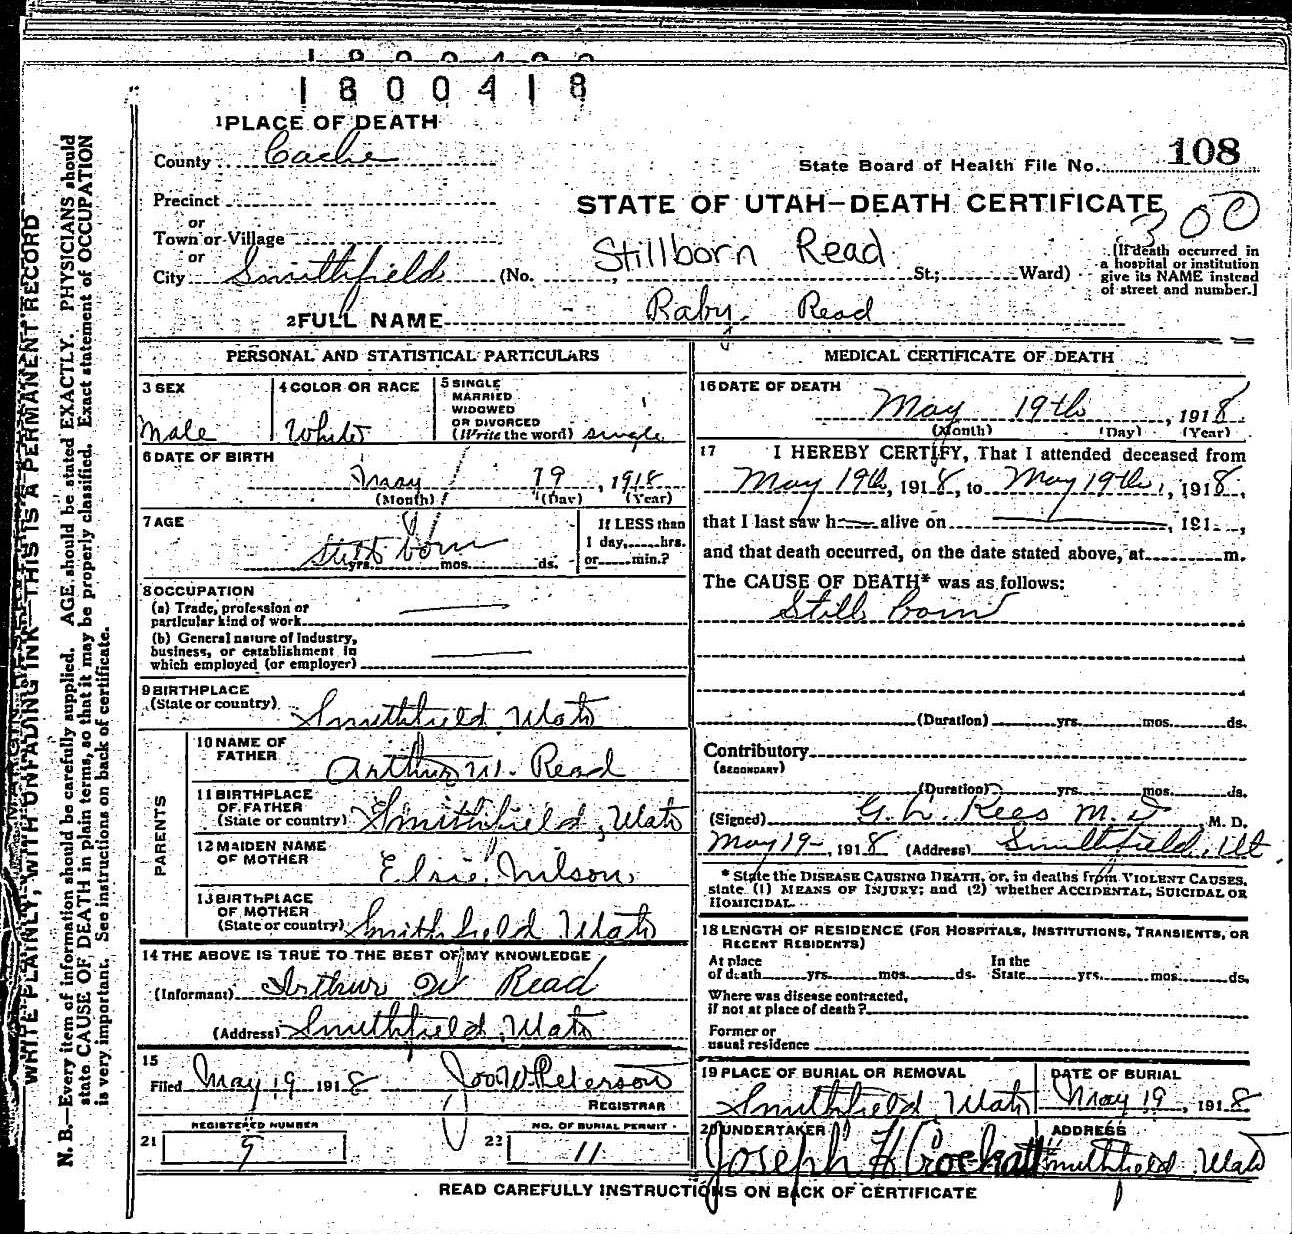 1800418
1 PLACE OF DEATH
County Cache
State Board of Health File No. 108
Precinct
STATE OF UTAH—DEATH CERTIFICATE
300
or
Town or Village
or
Stillborn Read
City Smithfield (No. , St.; Ward)
[If death occurred in
a hospital or institution
give its NAME instead
of street and number.]
2 FULL NAME Baby Read
PERSONAL AND STATISTICAL PARTICULARS
3 SEX
Male
4 COLOR OR RACE
White
5 SINGLE
MARRIED
WIDOWED
OR DIVORCED
(Write the word) single
6 DATE OF BIRTH
May 19, 1918
(Month) (Day) (Year)
7 AGE
Still born
yrs. mos. ds.
If LESS than
1 day, hrs.
or min.?
8 OCCUPATION
(a) Trade, profession or
particular kind of work
(b) General nature of Industry,
business, or establishment in
which employed (or employer)
9 BIRTHPLACE
(State or country) Smithfield Utah
PARENTS
10 NAME OF
FATHER Arthur W. Read
11 BIRTHPLACE
OF FATHER
(State or country) Smithfield, Utah
12 MAIDEN NAME
OF MOTHER Elsie Nilson
13 BIRTHPLACE
OF MOTHER
(State or country) Smithfield Utah
14 THE ABOVE IS TRUE TO THE BEST OF MY KNOWLEDGE
(Informant) Arthur W Read
(Address) Smithfield, Utah
15
Filed May 19 1918 Jos W Peterson
REGISTRAR
21 REGISTERED NUMBER
9
22 NO. OF BURIAL PERMIT
11
MEDICAL CERTIFICATE OF DEATH
16 DATE OF DEATH
May 19th, 1918
(Month) (Day) (Year)
17 I HEREBY CERTIFY, That I attended deceased from
May 19th, 1918, to May 19th, 1918,
that I last saw h alive on , 191 ,
and that death occurred, on the date stated above, at m.
The CAUSE OF DEATH* was as follows:
Still born
(Duration) yrs. mos. ds.
Contributory
(SECONDARY)
(Duration) yrs. mos. ds.
(Signed) G. L. Rees M. D , M. D.
May 19, 1918 (Address) Smithfield, Ut.
* State the DISEASE CAUSING DEATH, or, in deaths from VIOLENT CAUSES,
state (1) MEANS OF INJURY; and (2) whether ACCIDENTAL, SUICIDAL OR
HOMICIDAL.
18 LENGTH OF RESIDENCE (FOR HOSPITALS, INSTITUTIONS, TRANSIENTS, OR
RECENT RESIDENTS)
At place
of death yrs. mos. ds.
In the
State yrs. mos. ds.
Where was disease contracted,
if not at place of death?
Former or
usual residence
19 PLACE OF BURIAL OR REMOVAL
Smithfield Utah
DATE OF BURIAL
May 19, 1918
20 UNDERTAKER
Joseph H Crockatt
ADDRESS
Smithfield Utah
READ CAREFULLY INSTRUCTIONS ON BACK OF CERTIFICATE
WRITE PLAINLY, WITH UNFADING INK—THIS IS A PERMANENT RECORD
N. B.—Every item of information should be carefully supplied. AGE should be stated EXACTLY. PHYSICIANS should
state CAUSE OF DEATH in plain terms, so that it may be properly classified. Exact statement of OCCUPATION
is very important. See instructions on back of certificate.